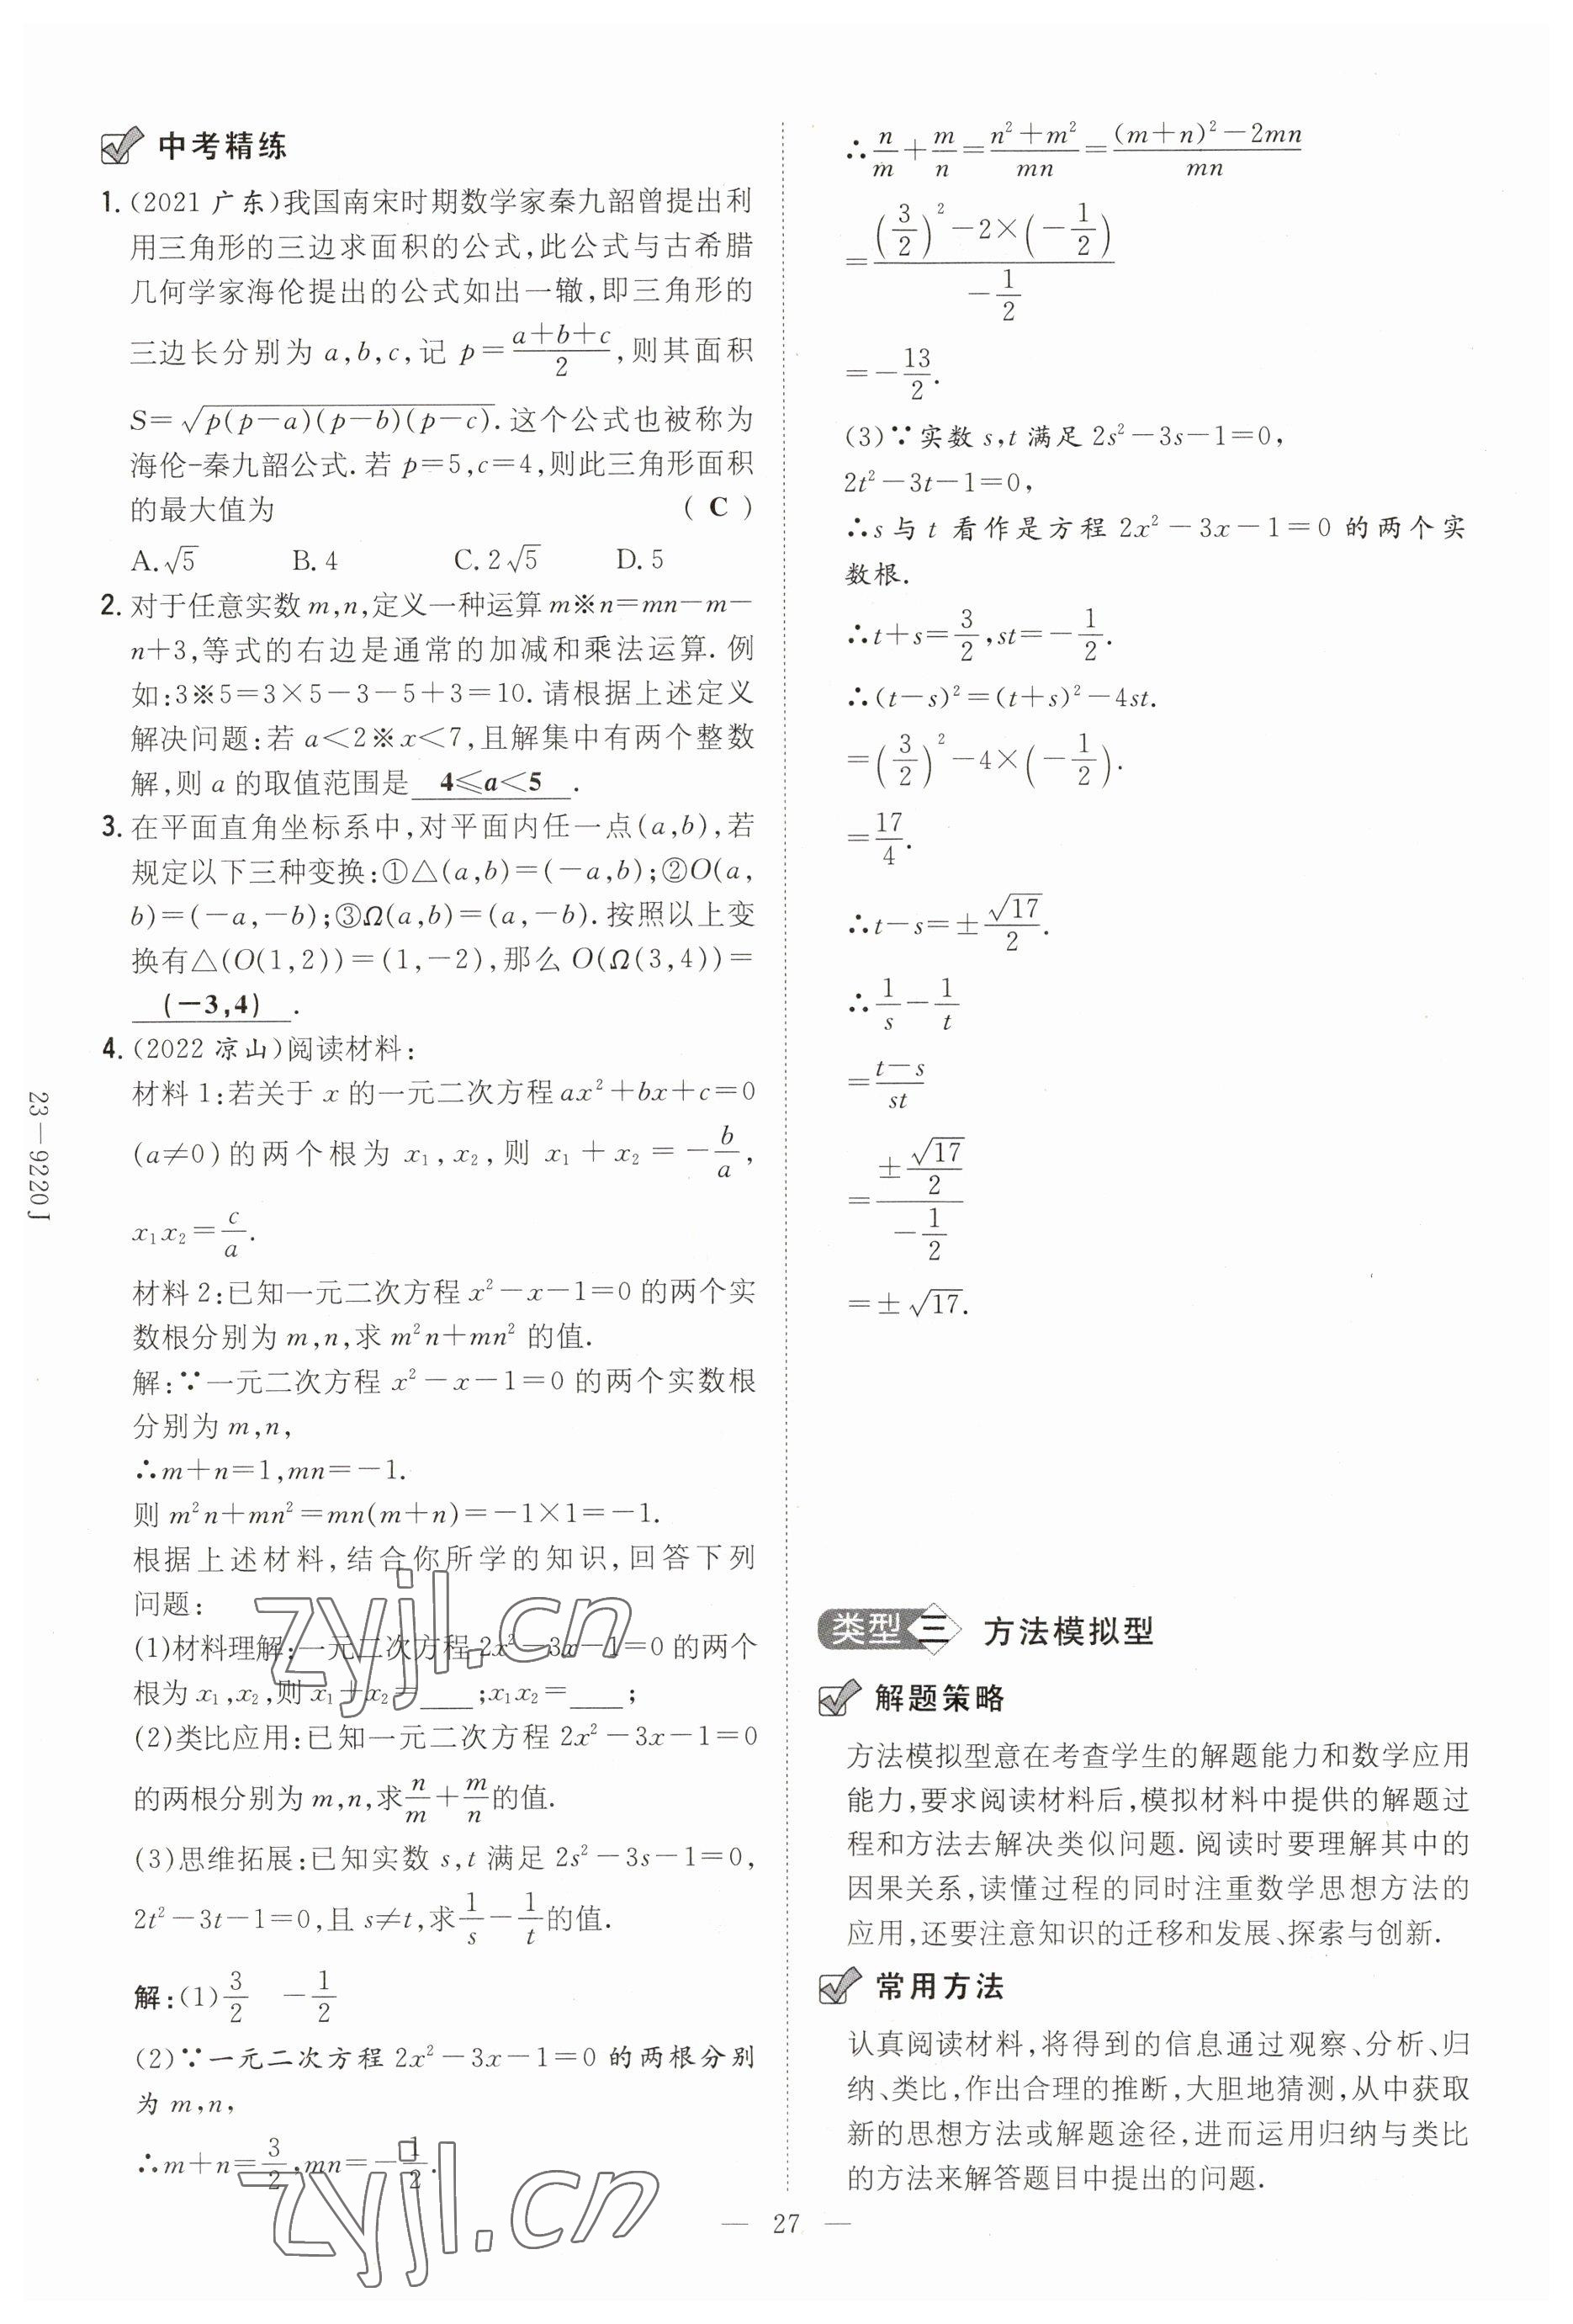 中考精练
1.(2021 广东)我国南宋时期数学家秦九韶曾提出利
用三角形的三边求面积的公式,此公式与古希腊
几何学家海伦提出的公式如出一辙,即三角形的
三边长分别为 a,b,c,记 p=\frac{a+b+c}{2},则其面积
S=\sqrt{p(p-a)(p-b)(p-c)}.这个公式也被称为
海伦-秦九韶公式.若 p=5,c=4,则此三角形面积
的最大值为 ( C )
A.√5 B. 4 C. 2√5 D. 5
2. 对于任意实数 m,n,定义一种运算 m※n=mn-m-
n+3,等式的右边是通常的加减和乘法运算. 例
如:3※5=3×5-3-5+3=10. 请根据上述定义
解决问题:若 a<2※x<7,且解集中有两个整数
解,则 a 的取值范围是 4≤a<5 .
3. 在平面直角坐标系中,对平面内任一点(a,b),若
规定以下三种变换:①△(a,b)=(-a,b);②O(a,
b)=(-a,-b);③Ω(a,b)=(a,-b). 按照以上变
换有△(O(1,2))=(1,-2),那么 O(Ω(3,4))=
(-3,4) .
4. (2022 凉山)阅读材料:
材料 1:若关于 x 的一元二次方程 ax²+bx+c=0
(a≠0)的两个根为 x₁,x₂,则 x₁+x₂=-\frac{b}{a},
x₁x₂=\frac{c}{a}.
材料 2:已知一元二次方程 x²-x-1=0 的两个实
数根分别为 m,n,求 m²n+mn² 的值.
解:∵一元二次方程 x²-x-1=0 的两个实数根
分别为 m,n,
∴m+n=1,mn=-1.
则 m²n+mn²=mn(m+n)=-1×1=-1.
根据上述材料,结合你所学的知识,回答下列
问题:
(1)材料理解:一元二次方程 2x²-3x-1=0 的两个
根为 x₁,x₂,则 x₁+x₂=____;x₁x₂=____;
(2)类比应用:已知一元二次方程 2x²-3x-1=0
的两根分别为 m,n,求\frac{n}{m}+\frac{m}{n}的值.
(3)思维拓展:已知实数 s,t 满足 2s²-3s-1=0,
2t²-3t-1=0,且 s≠t,求\frac{1}{s}-\frac{1}{t}的值.
解:(1)\frac{3}{2} -\frac{1}{2}
(2)∵一元二次方程 2x²-3x-1=0 的两根分别
为 m,n,
∴m+n=\frac{3}{2},mn=-\frac{1}{2}.
∴\frac{n}{m}+\frac{m}{n}=\frac{n²+m²}{mn}=\frac{(m+n)²-2mn}{mn}
=\frac{(\frac{3}{2})²-2×(-\frac{1}{2})}{-\frac{1}{2}}
=-\frac{13}{2}.
(3)∵实数 s,t 满足 2s²-3s-1=0,
2t²-3t-1=0,
∴s 与 t 看作是方程 2x²-3x-1=0 的两个实
数根.
∴t+s=\frac{3}{2},st=-\frac{1}{2}.
∴(t-s)²=(t+s)²-4st.
=(\frac{3}{2})²-4×(-\frac{1}{2}).
=\frac{17}{4}.
∴t-s=±\frac{√17}{2}.
∴\frac{1}{s}-\frac{1}{t}
=\frac{t-s}{st}
=\frac{±\frac{√17}{2}}{-\frac{1}{2}}
=±√17.
类型三 方法模拟型
解题策略
方法模拟型意在考查学生的解题能力和数学应用
能力,要求阅读材料后,模拟材料中提供的解题过
程和方法去解决类似问题. 阅读时要理解其中的
因果关系,读懂过程的同时注重数学思想方法的
应用,还要注意知识的迁移和发展、探索与创新.
常用方法
认真阅读材料,将得到的信息通过观察、分析、归
纳、类比,作出合理的推断,大胆地猜测,从中获取
新的思想方法或解题途径,进而运用归纳与类比
的方法来解答题目中提出的问题.
— 27 —
23-9220J
zyjl.cn
zyjl.cn